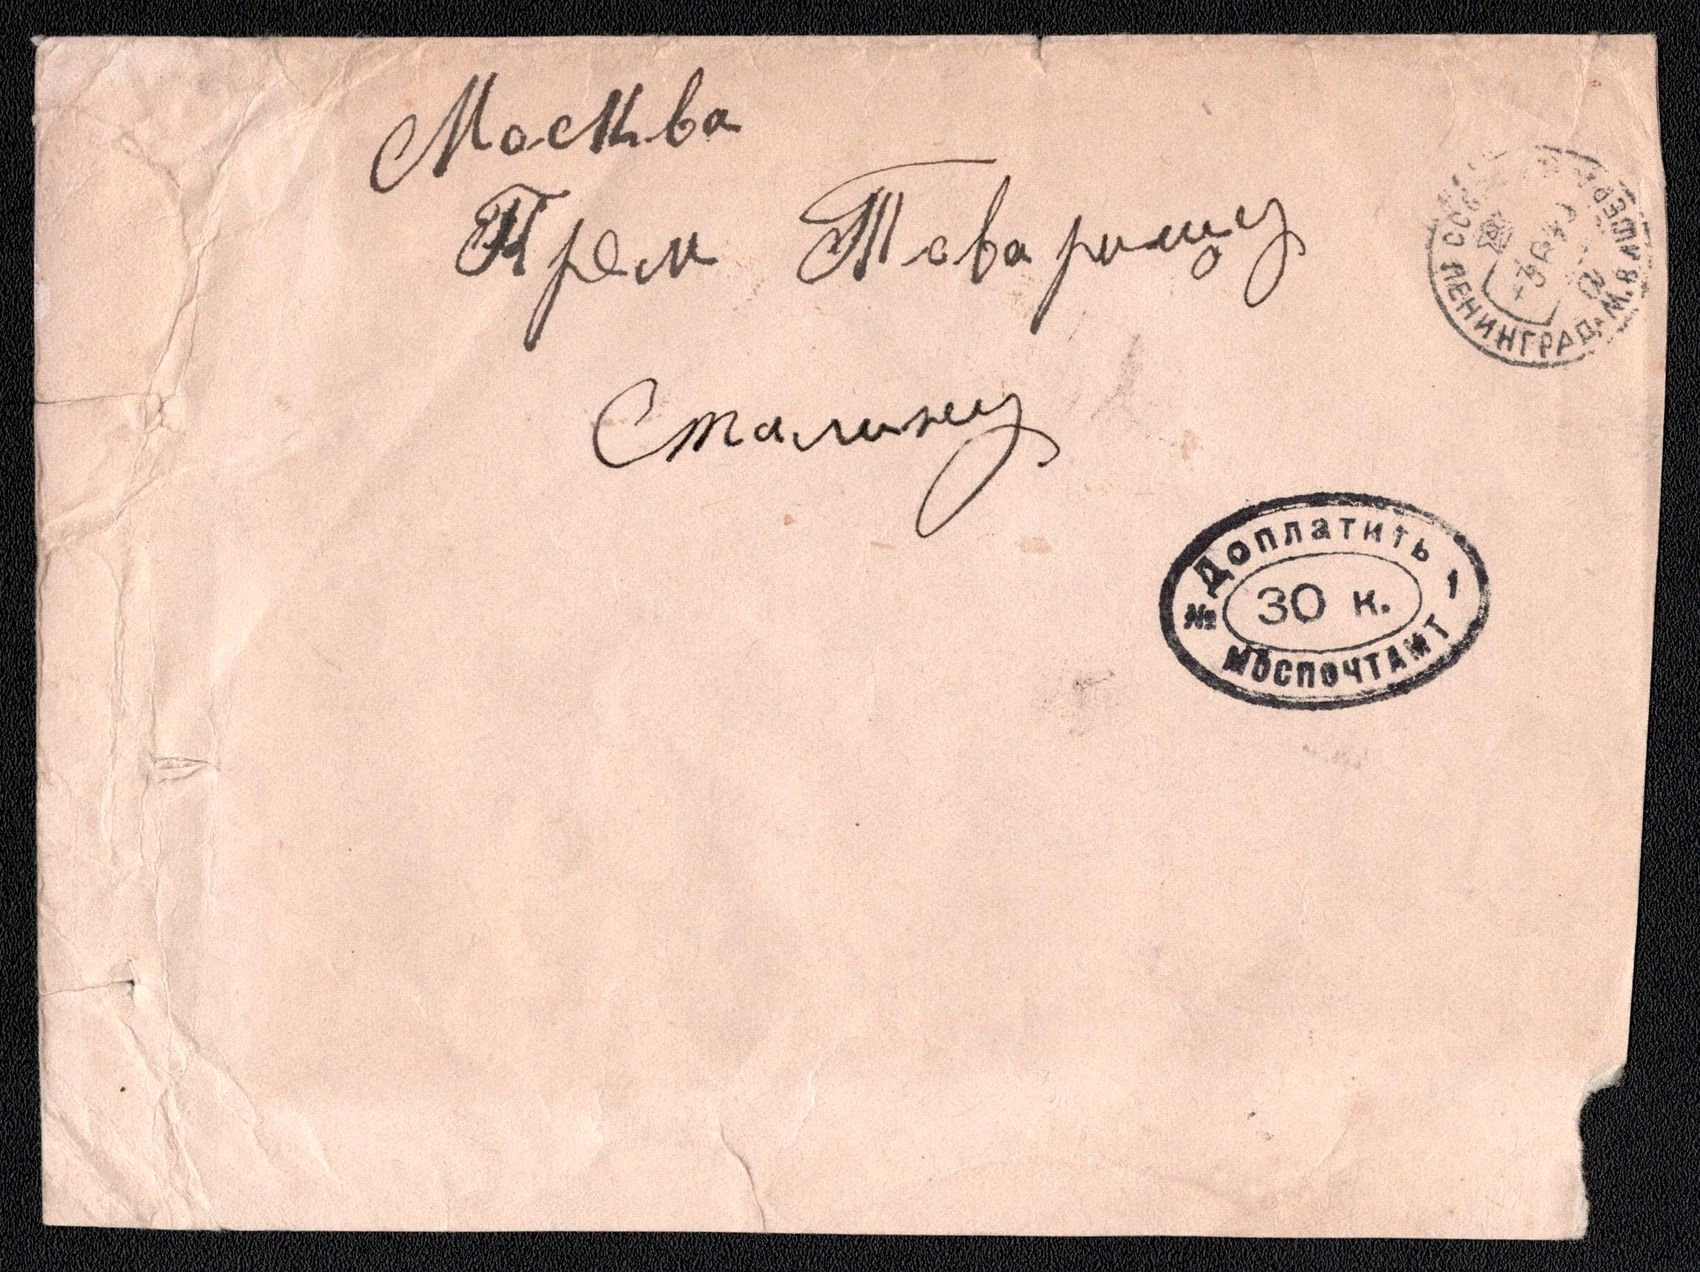 Москва
Крем Товарищу
Сталину
СССР
ЛЕНИНГРАД
Доплатить
№ 30 к. 1
МОСПОЧТАМТ